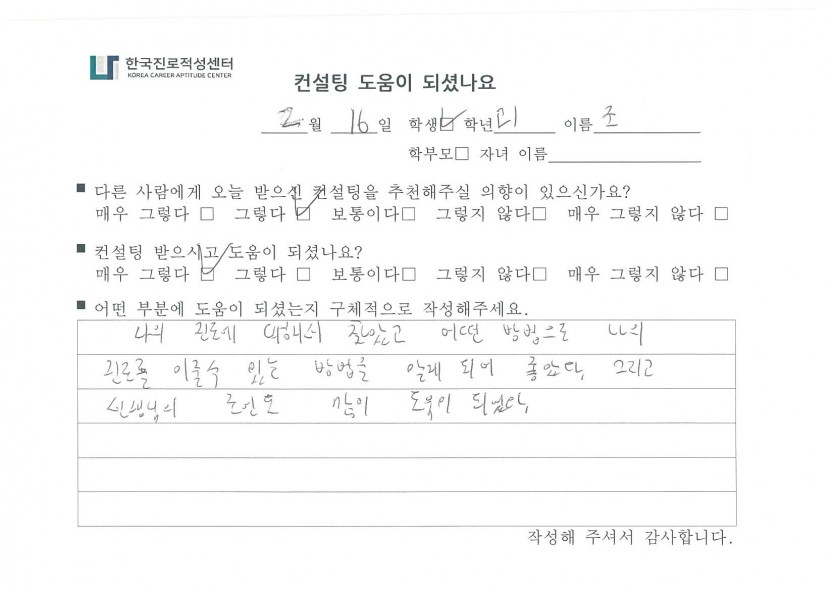 한국진로적성센터
KOREA CAREER APTITUDE CENTER
컨설팅 도움이 되셨나요
2월 16일 학생☑ 학년 고1 이름 조
학부모□ 자녀 이름
■ 다른 사람에게 오늘 받으신 컨설팅을 추천해주실 의향이 있으신가요?
매우 그렇다 □ 그렇다 ☑ 보통이다□ 그렇지 않다□ 매우 그렇지 않다 □
■ 컨설팅 받으시고 도움이 되셨나요?
매우 그렇다 ☑ 그렇다 □ 보통이다□ 그렇지 않다□ 매우 그렇지 않다 □
■ 어떤 부분에 도움이 되셨는지 구체적으로 작성해주세요.
나의 진로에 대해서 찾았고 어떤 방법으로 나의
진로를 이룰수 있는 방법을 알게 되어 좋았다, 그리고
선생님의 조언도 많이 도움이 되었다,
작성해 주셔서 감사합니다.